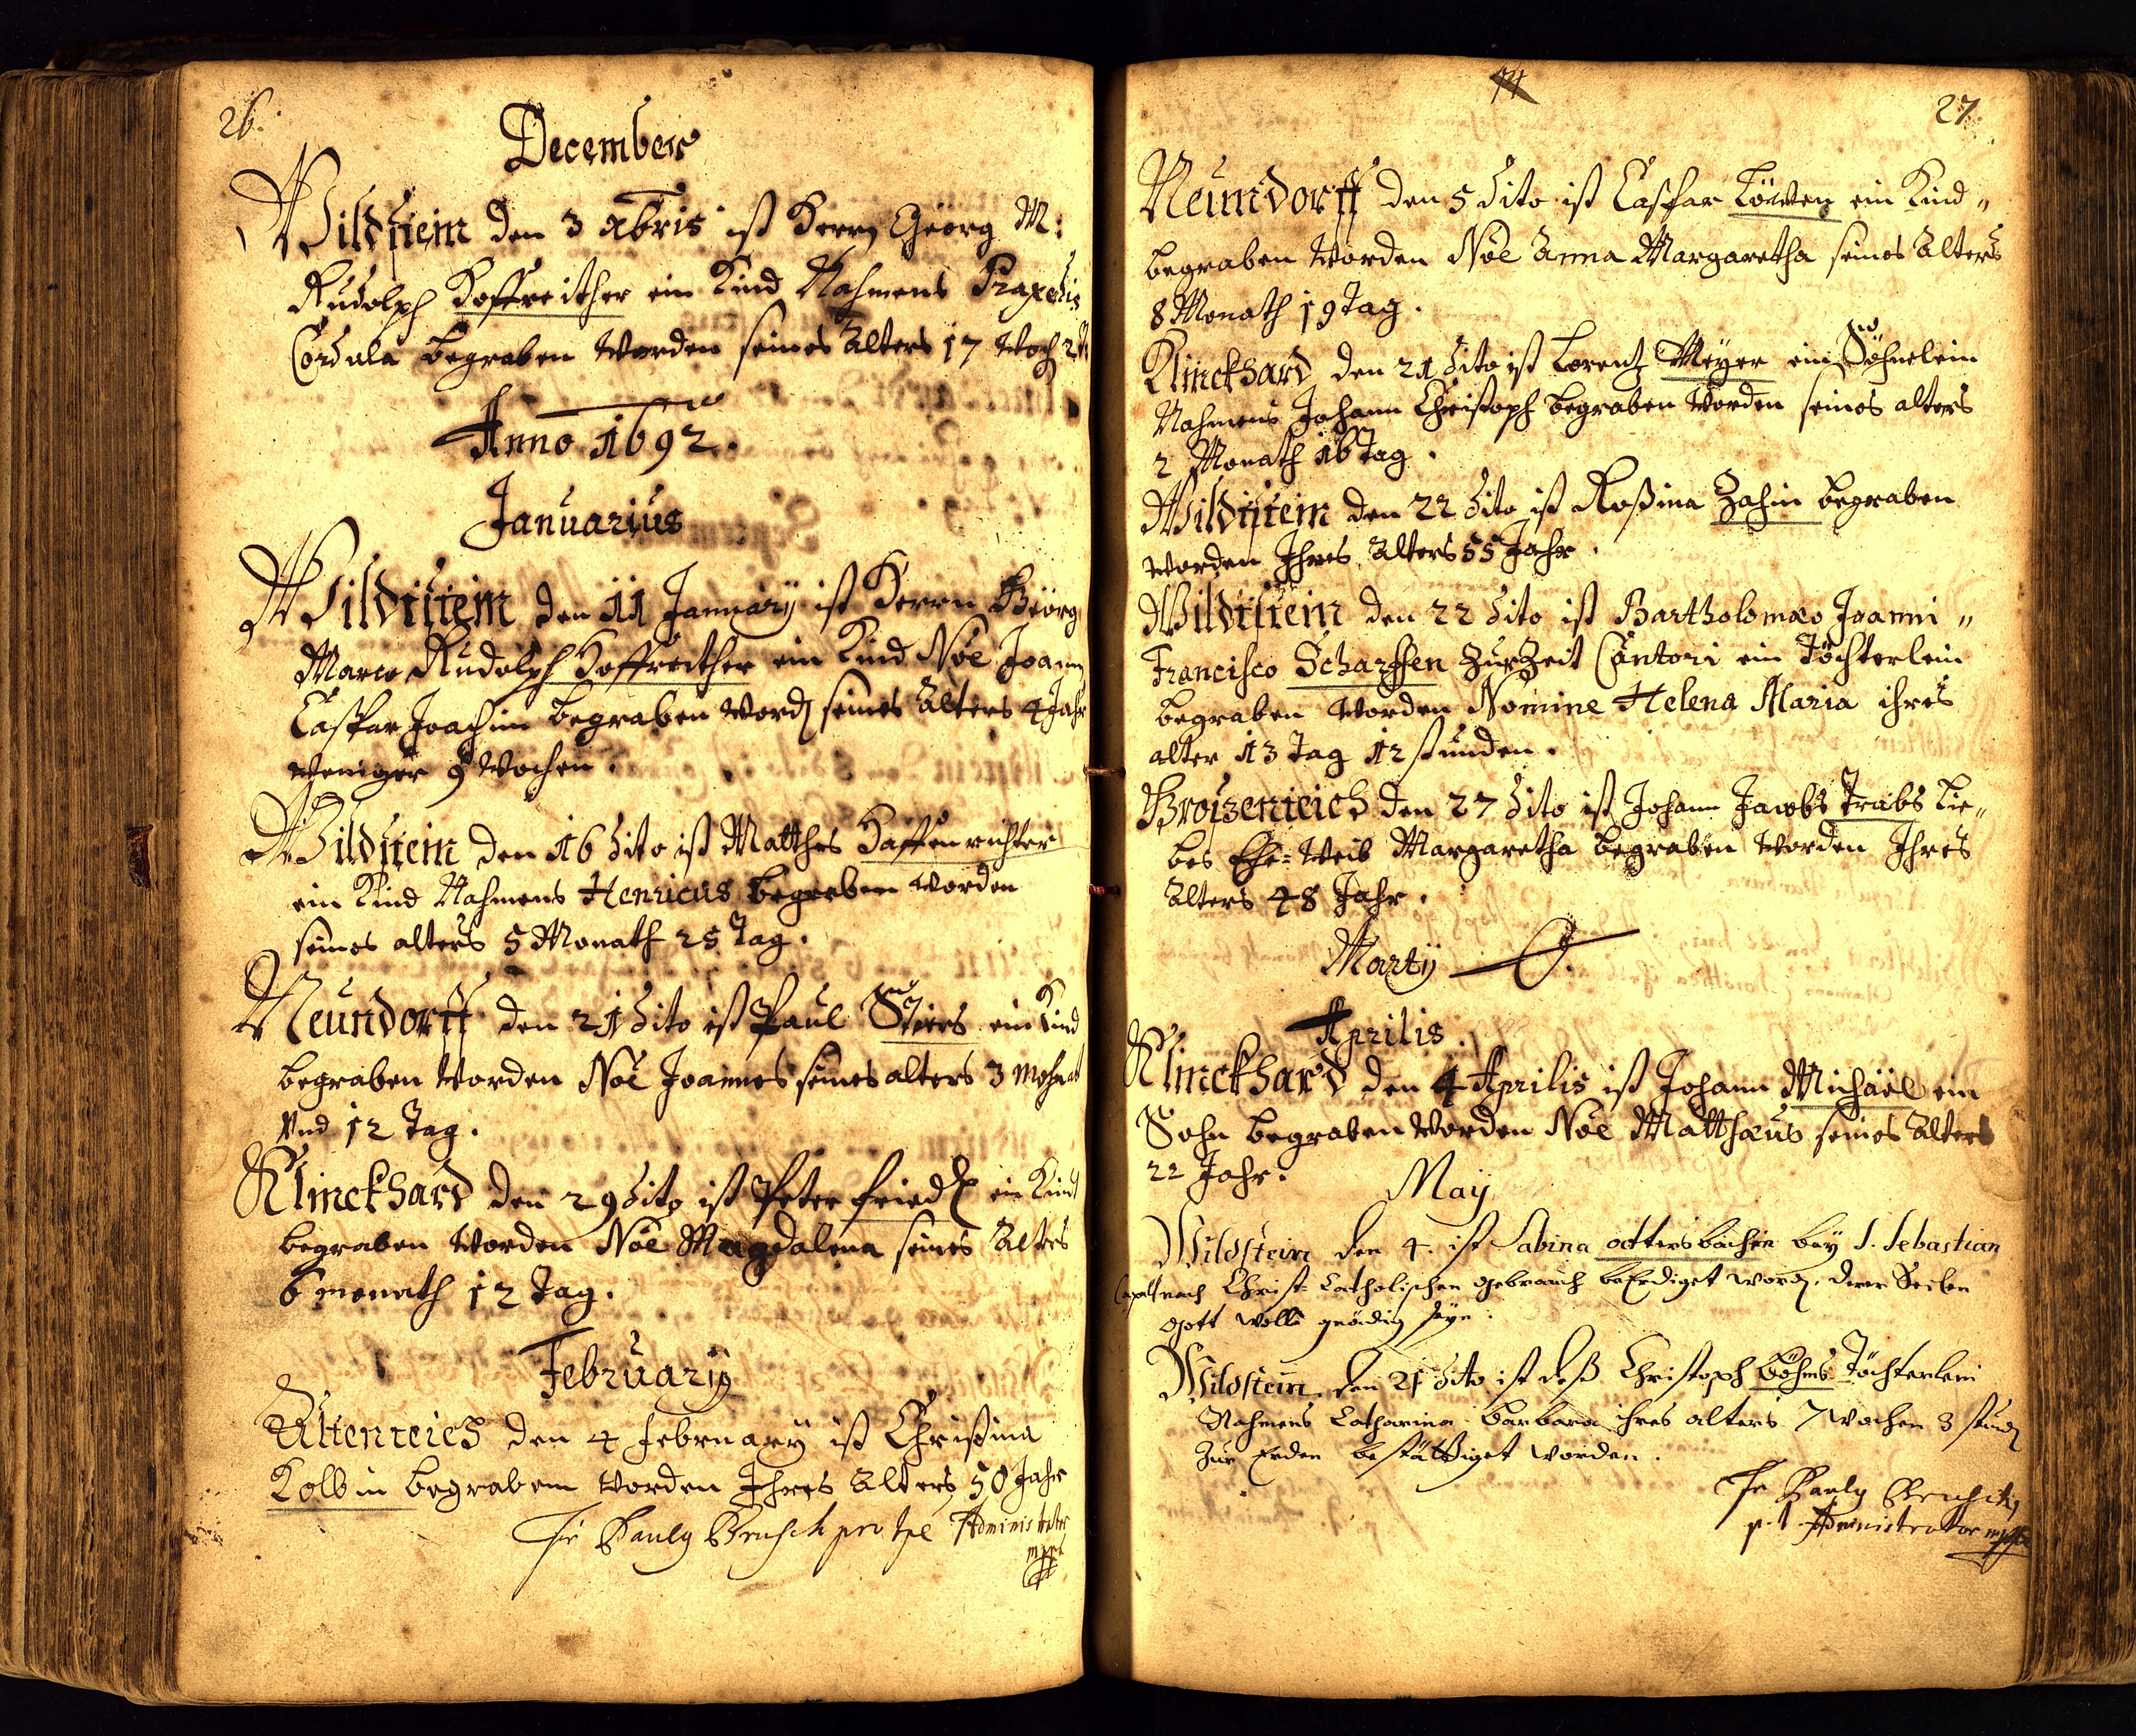 26.
December
Wildstein den 3 Xbris ist Herrn Georg M:
Rudolph Hoffreither ein Kind Nahmens Praxedis
Cordula begraben worden seines Alters 17 Woch 2
Anno 1692.
Januarius
Wildstein den 11 January ist Herrn Georg
Marco Rudolph Hoffreither ein Kind Nõe Joann
Caspar Joachim begraben word seines Alters 4 Jahr
weniger 9 Wochen.
Wildstein den 16 dito ist Matthes Haffenrichter
ein Kind Nahmens Henricus begraben worden
seines alters 5 Monath 25 Tag.
Neundorff den 21 dito ist Paul Stiers ein Kind
begraben worden Nõe Joannes seines alters 3 Monat
Vnd 12 Tag.
Klinckhard den 29 dito ist Peter Friedl ein Kindt
begraben worden Nõe Magdalena seines Alters
6 monath 12 Tag.
February
Altenteich den 4 February ist Christina
Kolbin begraben worden Ihres Alters 50 Jahr
Fr Pauly pro tpe Administrator
mpp
27.
Neundorff den 5 dito ist Caspar Löwen ein Kind
begraben worden Nõe Anna Margaretha seines Alters
8 Monath 19 Tag.
Klinckhard den 21 dito ist Lorentz Meyer ein Söhnelein
Nahmens Johann Christoph begraben worden seines alters
2 Monath 16 Tag.
Wildstein den 22 dito ist Rosina Zahin begraben
worden Ihres Alters 55 Jahr.
Wildstein den 22 dito ist Bartholomæo Joanni
Francisco Scharffen Zur Zeit Cantori ein Töchterlein
begraben worden Nomine Helena Maria ihres
alter 13 Tag 12 stunden.
Großenteich den 27 dito ist Johann Jacobs Trabs Lie-
bes Ehe-Weib Margaretha begraben worden Ihres
Alters 48 Jahr.
Martij
Aprilis.
Klinckhard den 4 Aprilis ist Johann Michäel ein
Sohn begraben worden Nõe Matthæus seines Alters
22 Jahr.
May
Wildstein den 4. ist Sabina bey S. Sebastian
Capell nach Christ-Catholischen gebrauch beErdiget word. derer Seelen
Gott wolle gnädig seyn.
Wildstein den 21 dito ist deß Christoph Böhms Töchterlein
Nahmens Catharina Barbara ihres alters 7 wochen 3 stund
Zur Erden bestättiget worden.
Fr Pauly
p. t. Administrator mpp